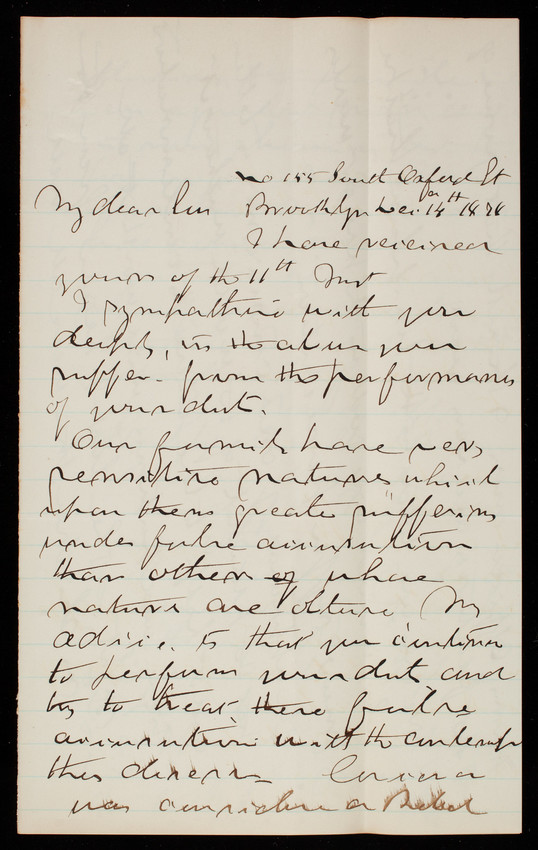 no 155 South Oxford St
My dear Brooklyn Dec 14th 1876
I have received
yours of the 11th Inst
I sympathise with you
deeply, in the you
suffer from the performance
of your duty.
Our family have very
sensitive natures which
upon them greater suffering
under false accusation
than others whose
nature are My
advice is that you continue
to perform your duty and
try to treat these false
accusations with the contempt
they deserve
was considered a Rebel